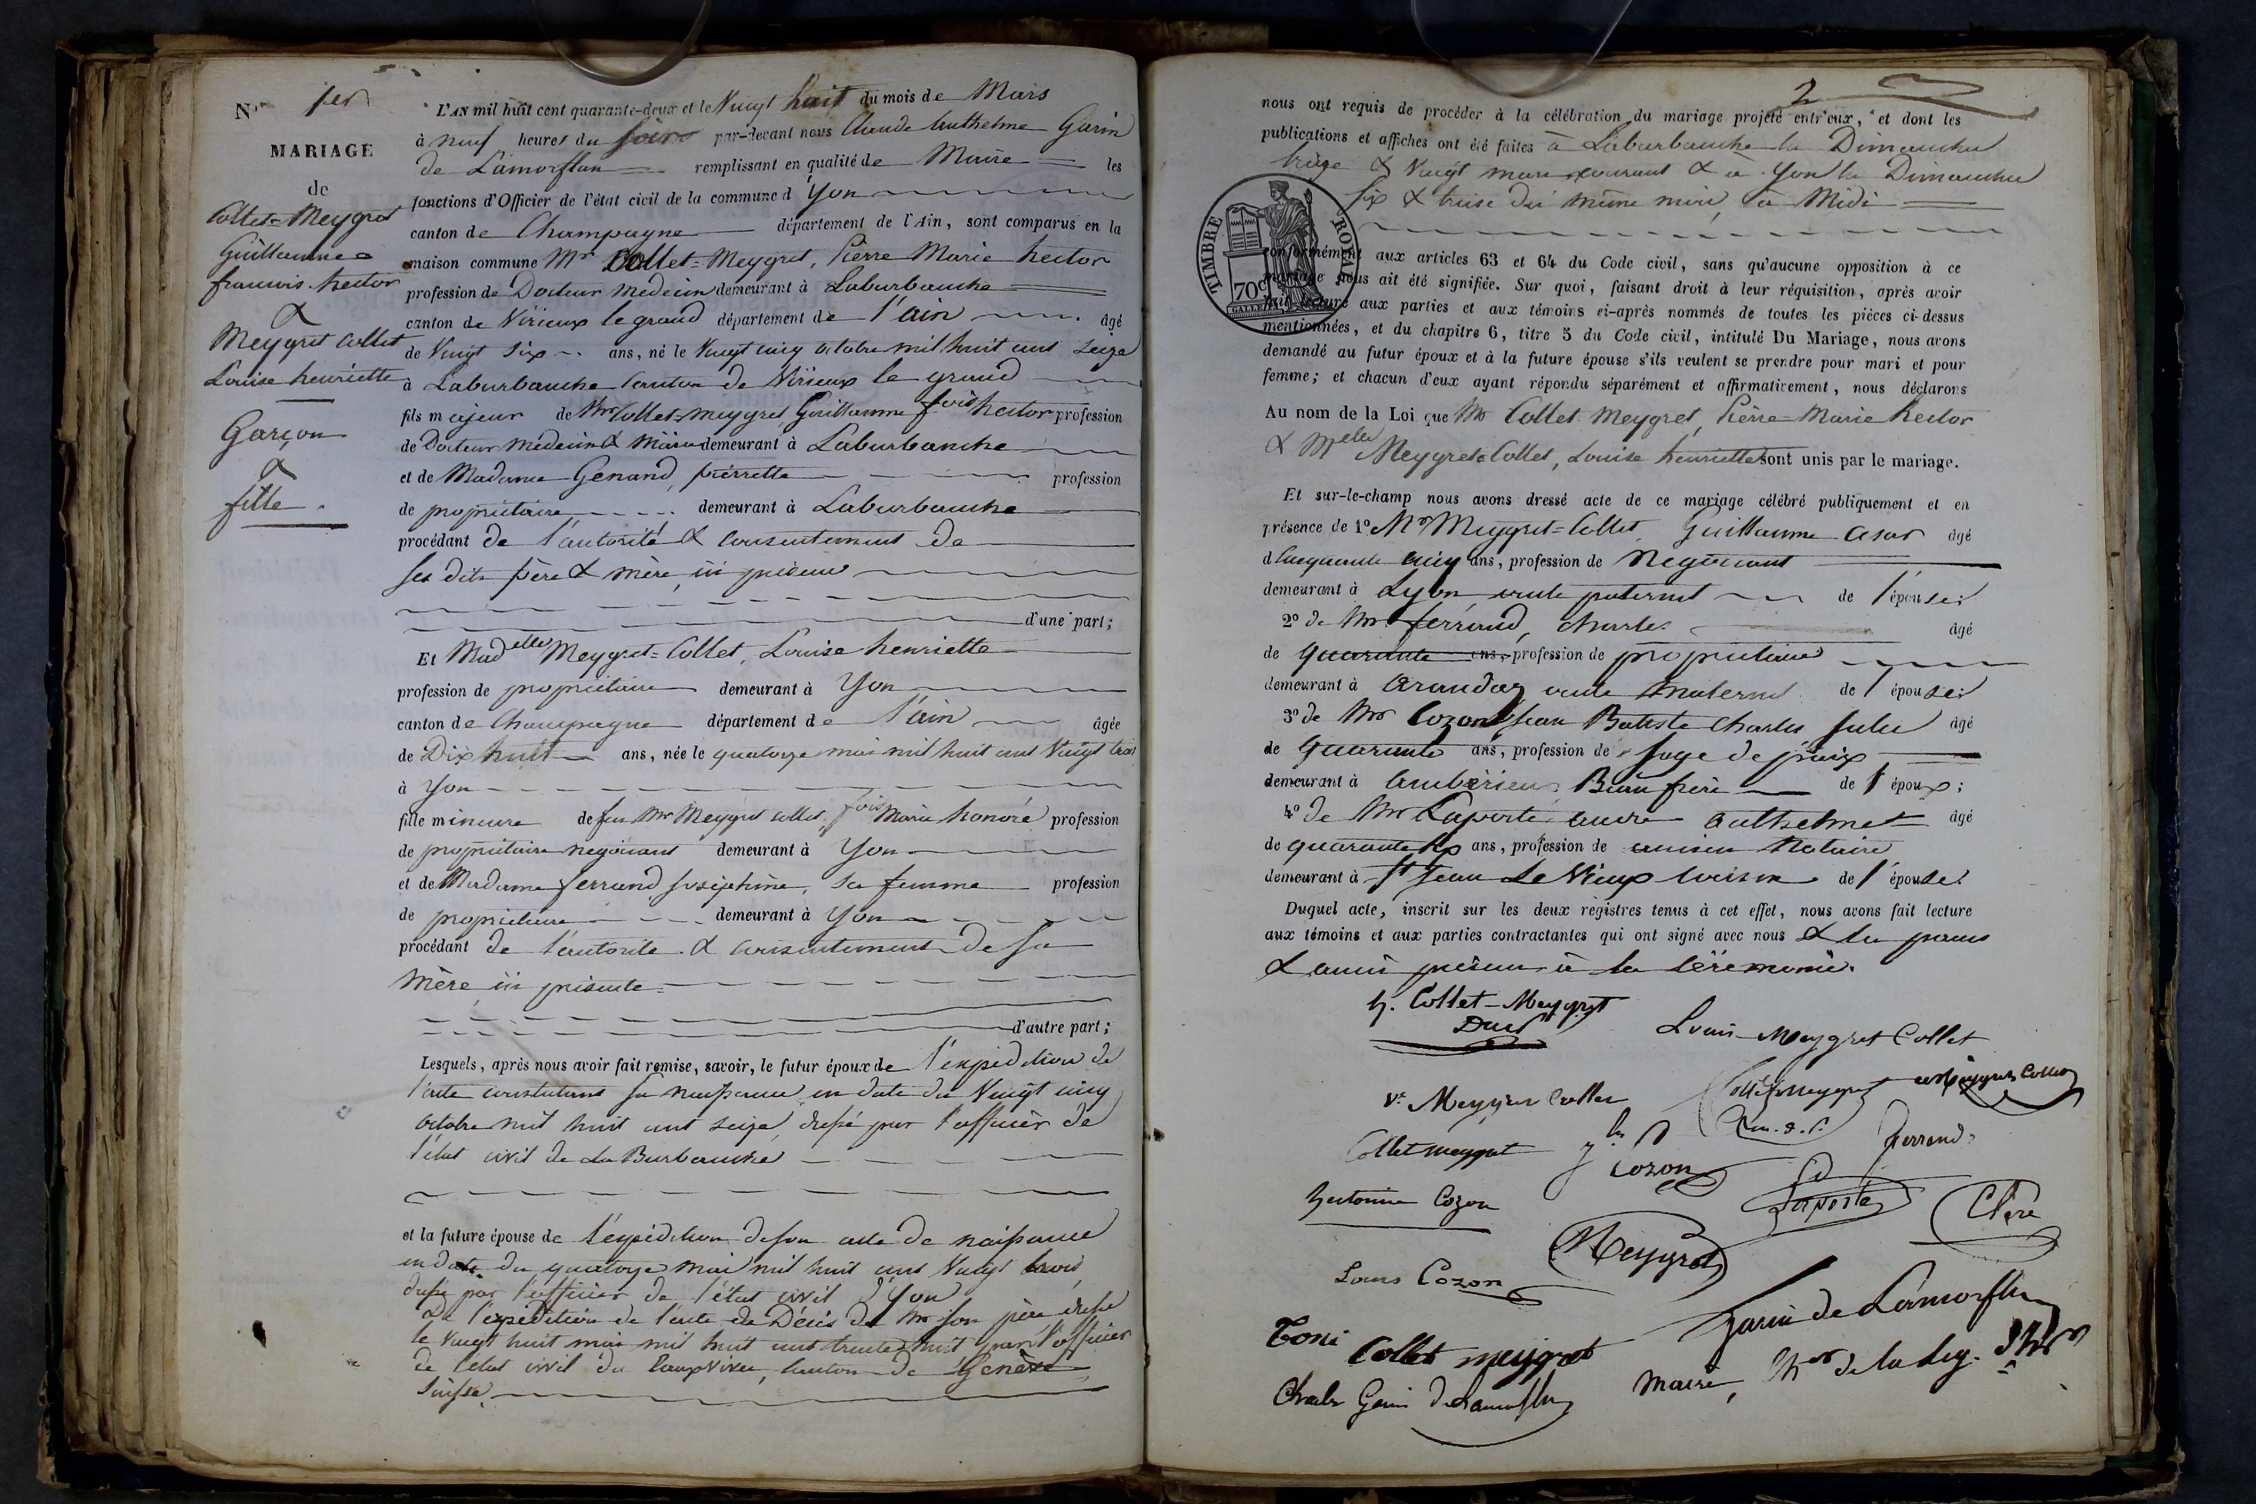 N° 1er
MARIAGE
de
Collet-Meygret
Guillaume
francois hector
&
Meygret Collet
Louise henriette
Garçon
&
fille.
L'AN mil huit cent quarante-deux et le Vingt huit du mois de Mars
à neuf heures du soir par-devant nous Claude Anthelme Garin
de Lamorflan remplissant en qualité de Maire les
fonctions d'Officier de l'état civil de la commune d'Yon
canton de Champagne département de l'Ain, sont comparus en la
maison commune Mr Collet-Meygret, Pierre Marie hector
profession de Docteur medecin demeurant à Laburbanche
canton de Virieux le grand département de l'ain âgé
de Vingt six ans, né le Vingt cinq octobre mil huit cent seize
à Laburbanche Canton de Virieux le grand
fils majeur de Mr Collet-meygret Guillaume fois hector profession
de Docteur médecin & Maire demeurant à Laburbanche
et de Madame Genand, pierrette profession
de propriétaire demeurant à Laburbanche
procédant de l'autorité & consentement de
ses dits père & mère, ici présens
d'une part;
Et Madelle Meygret-Collet, Louise henriette
profession de propriétaire demeurant à Yon
canton de Champagne département de l'ain âgée
de Dix huit ans, née le quatorze mai mil huit cent Vingt trois
à Yon
fille mineure de feu Mr Meygret collet, fois Marie honoré profession
de propriétaire négociant demeurant à Yon
et de Madame ferrand Joséphine, sa femme profession
de propriétaire demeurant à Yon
procédant de l'autorité & consentement de sa
mère ici présente
d'autre part;
Lesquels, après nous avoir fait remise, savoir, le futur époux de l'expédition de
l'acte constatant sa naissance en date du Vingt cinq
octobre mil huit cent seize, dressé par l'officier de
l'état civil de La Burbanche
et la future épouse de l'expédition de son acte de naissance
en date du quatorze mai mil huit cent Vingt trois
dressé par l'officier de l'état civil d'Yon
De l'expédition de l'acte de Décès de Mr son père dressé
le Vingt huit mai mil huit cent trente huit par l'officier
de l'état civil du Eauxvives, Canton de Genève
Suisse.
2
nous ont requis de procéder à la célébration du mariage projeté entr'eux, et dont les
publications et affiches ont été faites à Laburbanche les Dimanches
treize & Vingt mars courant & à Yon les Dimanches
six & treize du même mois, à Midi
TIMBRE ROYAL
70c
conformément aux articles 63 et 64 du Code civil, sans qu'aucune opposition à ce
mariage nous ait été signifiée. Sur quoi, faisant droit à leur réquisition, après avoir
fait lecture aux parties et aux témoins ci-après nommés de toutes les pièces ci-dessus
mentionnées, et du chapitre 6, titre 5 du Code civil, intitulé Du Mariage, nous avons
demandé au futur époux et à la future épouse s'ils veulent se prendre pour mari et pour
femme; et chacun d'eux ayant répondu séparément et affirmativement, nous déclarons
Au nom de la Loi que Mr Collet Meygret, Pierre Marie hector
& Melle Meygret Collet, Louise henriette sont unis par le mariage.
Et sur-le-champ nous avons dressé acte de ce mariage célébré publiquement et en
présence de 1° Mr Meygret-Collet, Guillaume âgé
de cinquante cinq ans, profession de Négociant
demeurant à Lyon, oncle paternel de l'épouse;
2° de Mr ferrand, charles âgé
de quarante ans, profession de propriétaire
demeurant à Arandaz oncle maternel de l'épouse;
3° de Mr Cozon Jean Batiste Charles Jules âgé
de Quarante ans, profession de Juge de paix
demeurant à Ambérieux Beau frère de l'époux;
4° de Mr Laporte anthelme âgé
de quarante six ans, profession de ancien Notaire
demeurant à St Jean Le Vieux cousin de l'épouse.
Duquel acte, inscrit sur les deux régistres tenus à cet effet, nous avons fait lecture
aux témoins et aux parties contractantes qui ont signé avec nous & les parens
& amis présens à la Cérémonie.
h. Collet-Meygret
Louise Meygret Collet
Ve Meygret Collet
Collet meygret
Cozon
ferrand
Laporte
Cozon
Meygret
Clerc
Louis Cozon
Garin de Lamorflan
Toni Collet meygret
Maire, de la Lég. d'hr
Charles Garin de Lamorflan